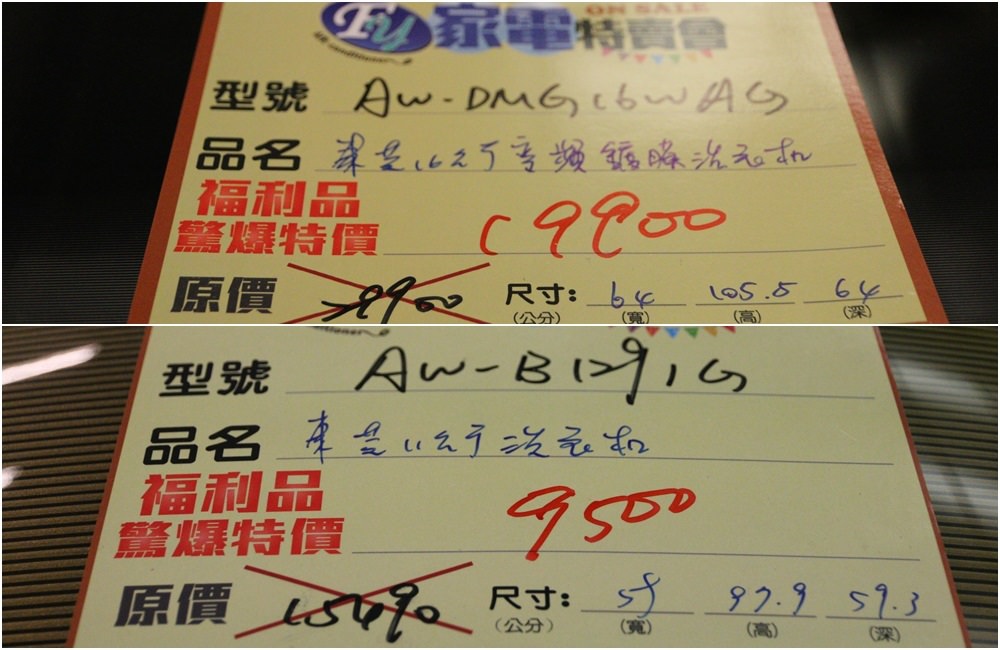 ON SALE
Fy 家電特賣會
Air conditioner
型號 AW-DMG16WAG
品名 東芝16公斤變頻鍍膜洗衣机
福利品
驚爆特價 19900
原價 29900 尺寸: 64 105.5 64
(公分) (寬) (高) (深)
型號 AW-B1291G
品名 東芝11公斤洗衣机
福利品
驚爆特價 9500
原價 15490 尺寸: 59 97.9 59.3
(公分) (寬) (高) (深)